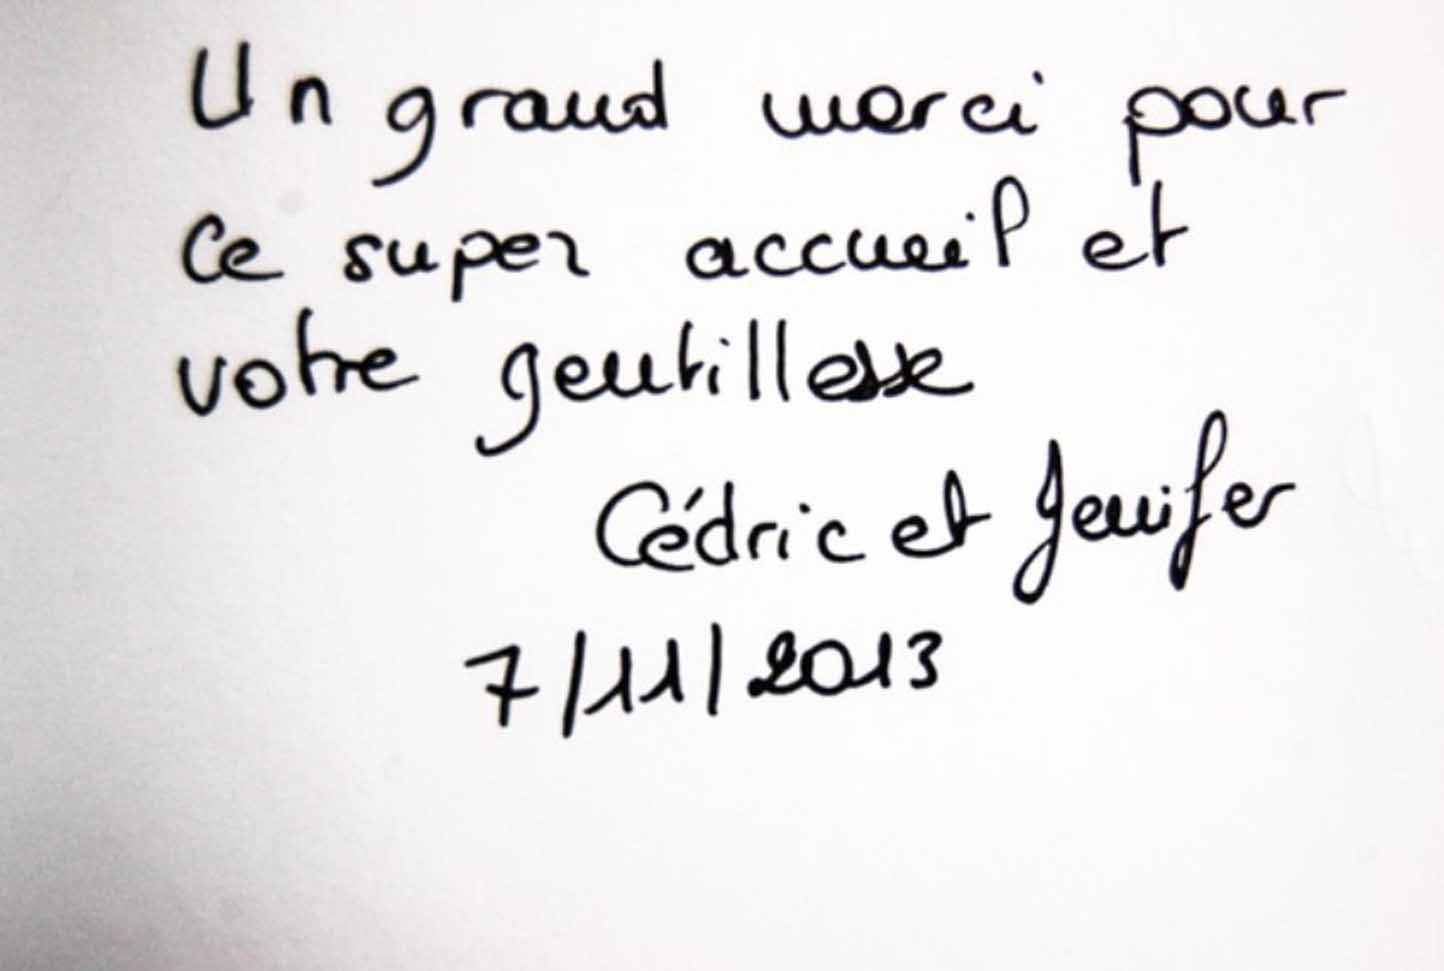 Un grand merci pour
ce super accueil et
votre gentillesse
Cédric et Jenifer
7/11/2013